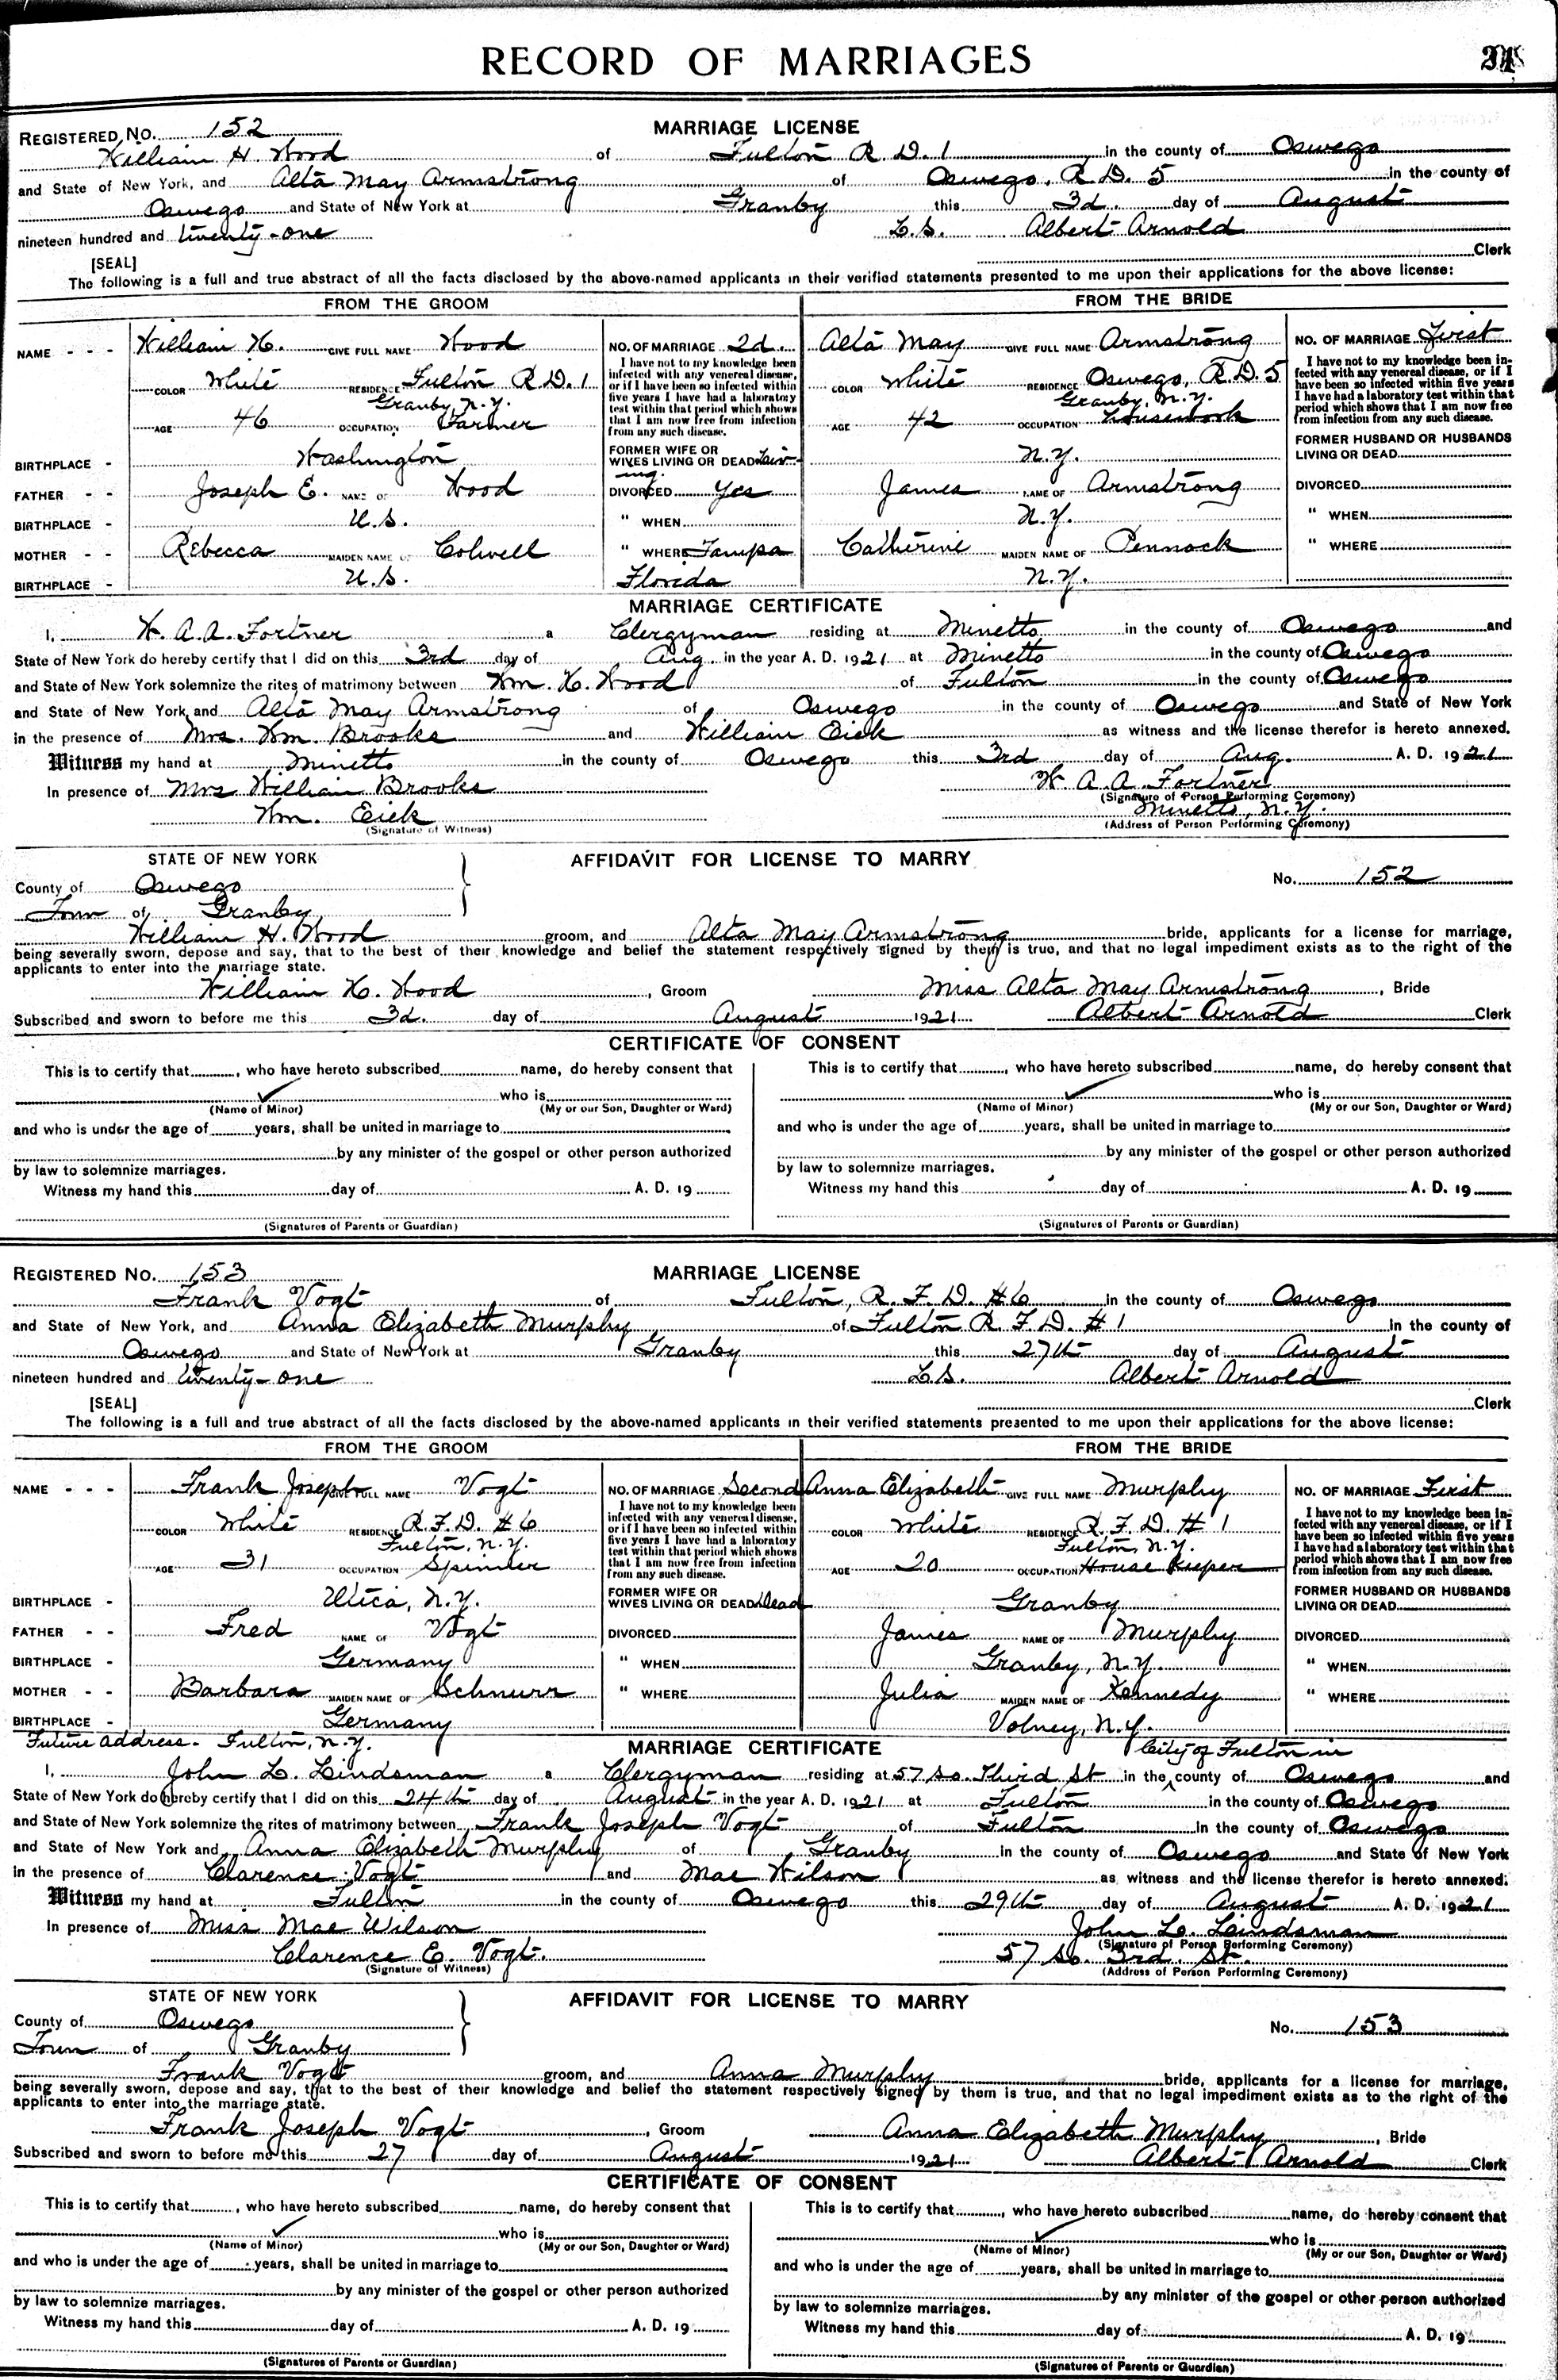 RECORD OF MARRIAGES
REGISTERED No. 152 MARRIAGE LICENSE
William H. Wood of Fulton R. D. 1 in the county of Oswego
and State of New York, and Alta May Armstrong of Oswego, R. D. 5 in the county of
Oswego and State of New York at Granby this 3d. day of August
nineteen hundred and twenty-one L.S. Albert Arnold
[SEAL] Clerk
The following is a full and true abstract of all the facts disclosed by the above-named applicants in their verified statements presented to me upon their applications for the above license:
FROM THE GROOM FROM THE BRIDE
NAME - - - William H. GIVE FULL NAME Wood NO. OF MARRIAGE 2d. Alta May GIVE FULL NAME Armstrong NO. OF MARRIAGE First
COLOR White RESIDENCE Fulton R. D. 1 Granby, N.Y. I have not to my knowledge been infected with any venereal disease, or if I have been so infected within five years I have had a laboratory test within that period which shows that I am now free from infection from any such disease. COLOR White RESIDENCE Oswego, R. D. 5 Granby, N.Y. I have not to my knowledge been infected with any venereal disease, or if I have been so infected within five years I have had a laboratory test within that period which shows that I am now free from infection from any such disease.
AGE 46 OCCUPATION Farmer AGE 42 OCCUPATION Housework
BIRTHPLACE - Washington FORMER WIFE OR WIVES LIVING OR DEAD Living N.Y. FORMER HUSBAND OR HUSBANDS LIVING OR DEAD
FATHER - - Joseph E. NAME OF Wood DIVORCED Yes James NAME OF Armstrong DIVORCED
BIRTHPLACE - U.S. " WHEN N.Y. " WHEN
MOTHER - - Rebecca MAIDEN NAME OF Colwell " WHERE Tampa Catherine MAIDEN NAME OF Pennock " WHERE
BIRTHPLACE - U.S. Florida N.Y.
MARRIAGE CERTIFICATE
I, W. A. A. Fortner a Clergyman residing at Minetto in the county of Oswego and
State of New York do hereby certify that I did on this 3rd day of Aug. in the year A. D. 1921 at Minetto in the county of Oswego
and State of New York solemnize the rites of matrimony between Wm. H. Wood of Fulton in the county of Oswego
and State of New York and Alta May Armstrong of Oswego in the county of Oswego and State of New York
in the presence of Mrs. Wm. Brooks and William Eick as witness and the license therefor is hereto annexed.
Witness my hand at Minetto in the county of Oswego this 3rd day of Aug. A. D. 1921
In presence of Mrs William Brooks W. A. A. Fortner
(Signature of Person Performing Ceremony)
Wm. Eick Minetto, N.Y.
(Signature of Witness) (Address of Person Performing Ceremony)
STATE OF NEW YORK AFFIDAVIT FOR LICENSE TO MARRY
County of Oswego No. 152
Town of Granby
William H. Wood groom, and Alta May Armstrong bride, applicants for a license for marriage,
being severally sworn, depose and say, that to the best of their knowledge and belief the statement respectively signed by them is true, and that no legal impediment exists as to the right of the
applicants to enter into the marriage state.
William H. Wood, Groom Miss Alta May Armstrong, Bride
Subscribed and sworn to before me this 3d. day of August 1921 Albert Arnold Clerk
CERTIFICATE OF CONSENT
This is to certify that, who have hereto subscribed name, do hereby consent that This is to certify that, who have hereto subscribed name, do hereby consent that
who is who is
(Name of Minor) (My or our Son, Daughter or Ward) (Name of Minor) (My or our Son, Daughter or Ward)
and who is under the age of years, shall be united in marriage to and who is under the age of years, shall be united in marriage to
by any minister of the gospel or other person authorized by any minister of the gospel or other person authorized
by law to solemnize marriages. by law to solemnize marriages.
Witness my hand this day of A. D. 19 Witness my hand this day of A. D. 19
(Signatures of Parents or Guardian) (Signatures of Parents or Guardian)
REGISTERED No. 153 MARRIAGE LICENSE
Frank Vogt of Fulton, R. F. D. #6 in the county of Oswego
and State of New York, and Anna Elizabeth Murphy of Fulton R. F. D. #1 in the county of
Oswego and State of New York at Granby this 27th day of August
nineteen hundred and twenty-one L.S. Albert Arnold
[SEAL] Clerk
The following is a full and true abstract of all the facts disclosed by the above-named applicants in their verified statements presented to me upon their applications for the above license:
FROM THE GROOM FROM THE BRIDE
NAME - - - Frank Joseph GIVE FULL NAME Vogt NO. OF MARRIAGE Second Anna Elizabeth GIVE FULL NAME Murphy NO. OF MARRIAGE First
COLOR White RESIDENCE R. F. D. #6 Fulton, N.Y. I have not to my knowledge been infected with any venereal disease, or if I have been so infected within five years I have had a laboratory test within that period which shows that I am now free from infection from any such disease. COLOR White RESIDENCE R. F. D. #1 Fulton, N.Y. I have not to my knowledge been infected with any venereal disease, or if I have been so infected within five years I have had a laboratory test within that period which shows that I am now free from infection from any such disease.
AGE 31 OCCUPATION Spinner AGE 20 OCCUPATION House Keeper
BIRTHPLACE - Utica, N.Y. FORMER WIFE OR WIVES LIVING OR DEAD Dead Granby FORMER HUSBAND OR HUSBANDS LIVING OR DEAD
FATHER - - Fred NAME OF Vogt DIVORCED James NAME OF Murphy DIVORCED
BIRTHPLACE - Germany " WHEN Granby, N.Y. " WHEN
MOTHER - - Barbara MAIDEN NAME OF Schnurr " WHERE Julia MAIDEN NAME OF Kennedy " WHERE
BIRTHPLACE - Germany Volney, N.Y.
Future address - Fulton, N.Y. MARRIAGE CERTIFICATE City of Fulton in
I, John L. Lindsman a Clergyman residing at 57 So. Third St in the county of Oswego and
State of New York do hereby certify that I did on this 24th day of August in the year A. D. 1921 at Fulton in the county of Oswego
and State of New York solemnize the rites of matrimony between Frank Joseph Vogt of Fulton in the county of Oswego
and State of New York and Anna Elizabeth Murphy of Granby in the county of Oswego and State of New York
in the presence of Clarence Vogt and Mae Wilson as witness and the license therefor is hereto annexed.
Witness my hand at Fulton in the county of Oswego this 29th day of August A. D. 1921
In presence of Miss Mae Wilson John L. Lindsman
(Signature of Person Performing Ceremony)
Clarence E. Vogt. 57 So. 3rd. St.
(Signature of Witness) (Address of Person Performing Ceremony)
STATE OF NEW YORK AFFIDAVIT FOR LICENSE TO MARRY
County of Oswego No. 153
Town of Granby
Frank Vogt groom, and Anna Murphy bride, applicants for a license for marriage,
being severally sworn, depose and say, that to the best of their knowledge and belief the statement respectively signed by them is true, and that no legal impediment exists as to the right of the
applicants to enter into the marriage state.
Frank Joseph Vogt, Groom Anna Elizabeth Murphy, Bride
Subscribed and sworn to before me this 27 day of August 1921 Albert Arnold Clerk
CERTIFICATE OF CONSENT
This is to certify that, who have hereto subscribed name, do hereby consent that This is to certify that, who have hereto subscribed name, do hereby consent that
who is who is
(Name of Minor) (My or our Son, Daughter or Ward) (Name of Minor) (My or our Son, Daughter or Ward)
and who is under the age of years, shall be united in marriage to and who is under the age of years, shall be united in marriage to
by any minister of the gospel or other person authorized by any minister of the gospel or other person authorized
by law to solemnize marriages. by law to solemnize marriages.
Witness my hand this day of A. D. 19 Witness my hand this day of A. D. 19
(Signatures of Parents or Guardian) (Signatures of Parents or Guardian)